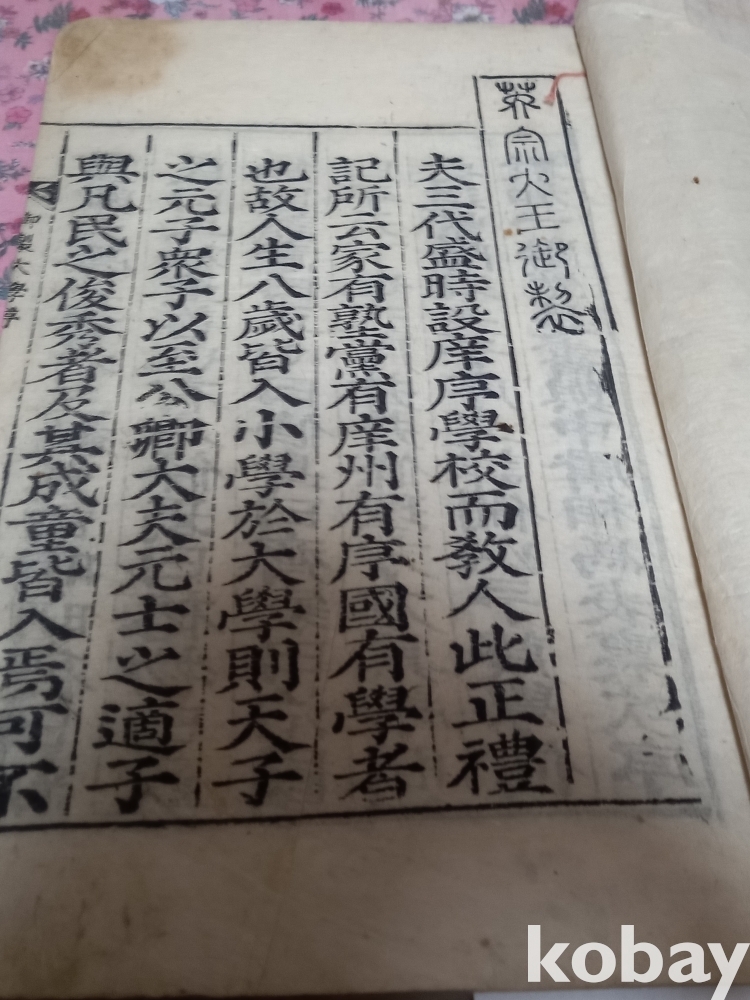 英宗大王御製
夫三代盛時設庠序學校而敎人此正禮
記所云家有塾黨有庠州有序國有學者
也故人生八歲皆入小學於大學則天子
之元子衆子以至公卿大夫元士之適子
與凡民之俊秀者及其成童皆入焉可不
御製大學序
kobay